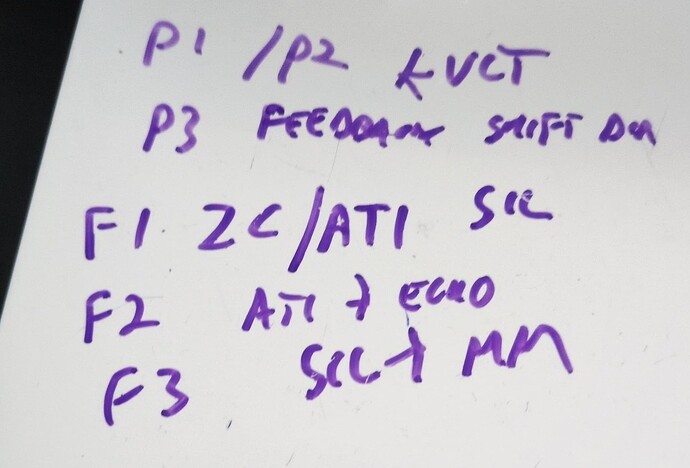 P1 / P2 & VCT
P3 FEEDBACK SHIFT
F1 2C/ATI SCL
F2 ATI → ECHO
F3 SCL → MM